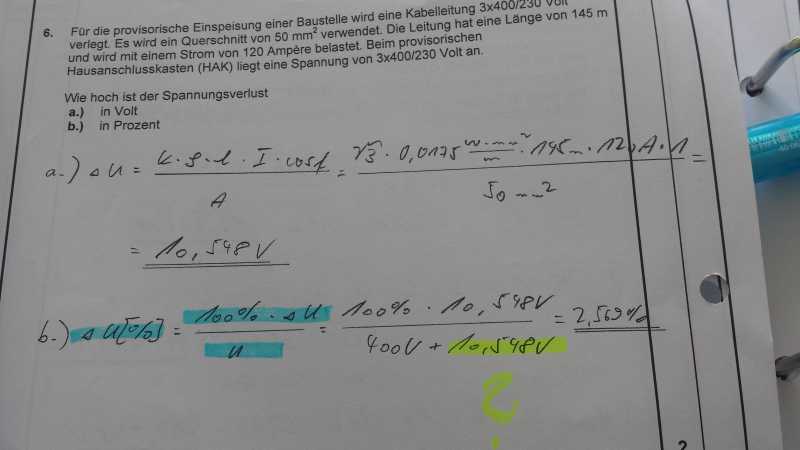 6. Für die provisorische Einspeisung einer Baustelle wird eine Kabelleitung 3x400/230 Volt
verlegt. Es wird ein Querschnitt von 50 mm² verwendet. Die Leitung hat eine Länge von 145 m
und wird mit einem Strom von 120 Ampère belastet. Beim provisorischen
Hausanschlusskasten (HAK) liegt eine Spannung von 3x400/230 Volt an.
Wie hoch ist der Spannungsverlust
a.) in Volt
b.) in Prozent
a.) ΔU = K·ρ·l·I·cosφ / A = √3 · 0,0175 Ω·mm²/m · 145m · 120A · 1 / 50 mm² =
= 10,548V
b.) ΔU[%] = 100% · ΔU / U = 100% · 10,548V / 400V + 10,548V = 2,569%
?
2